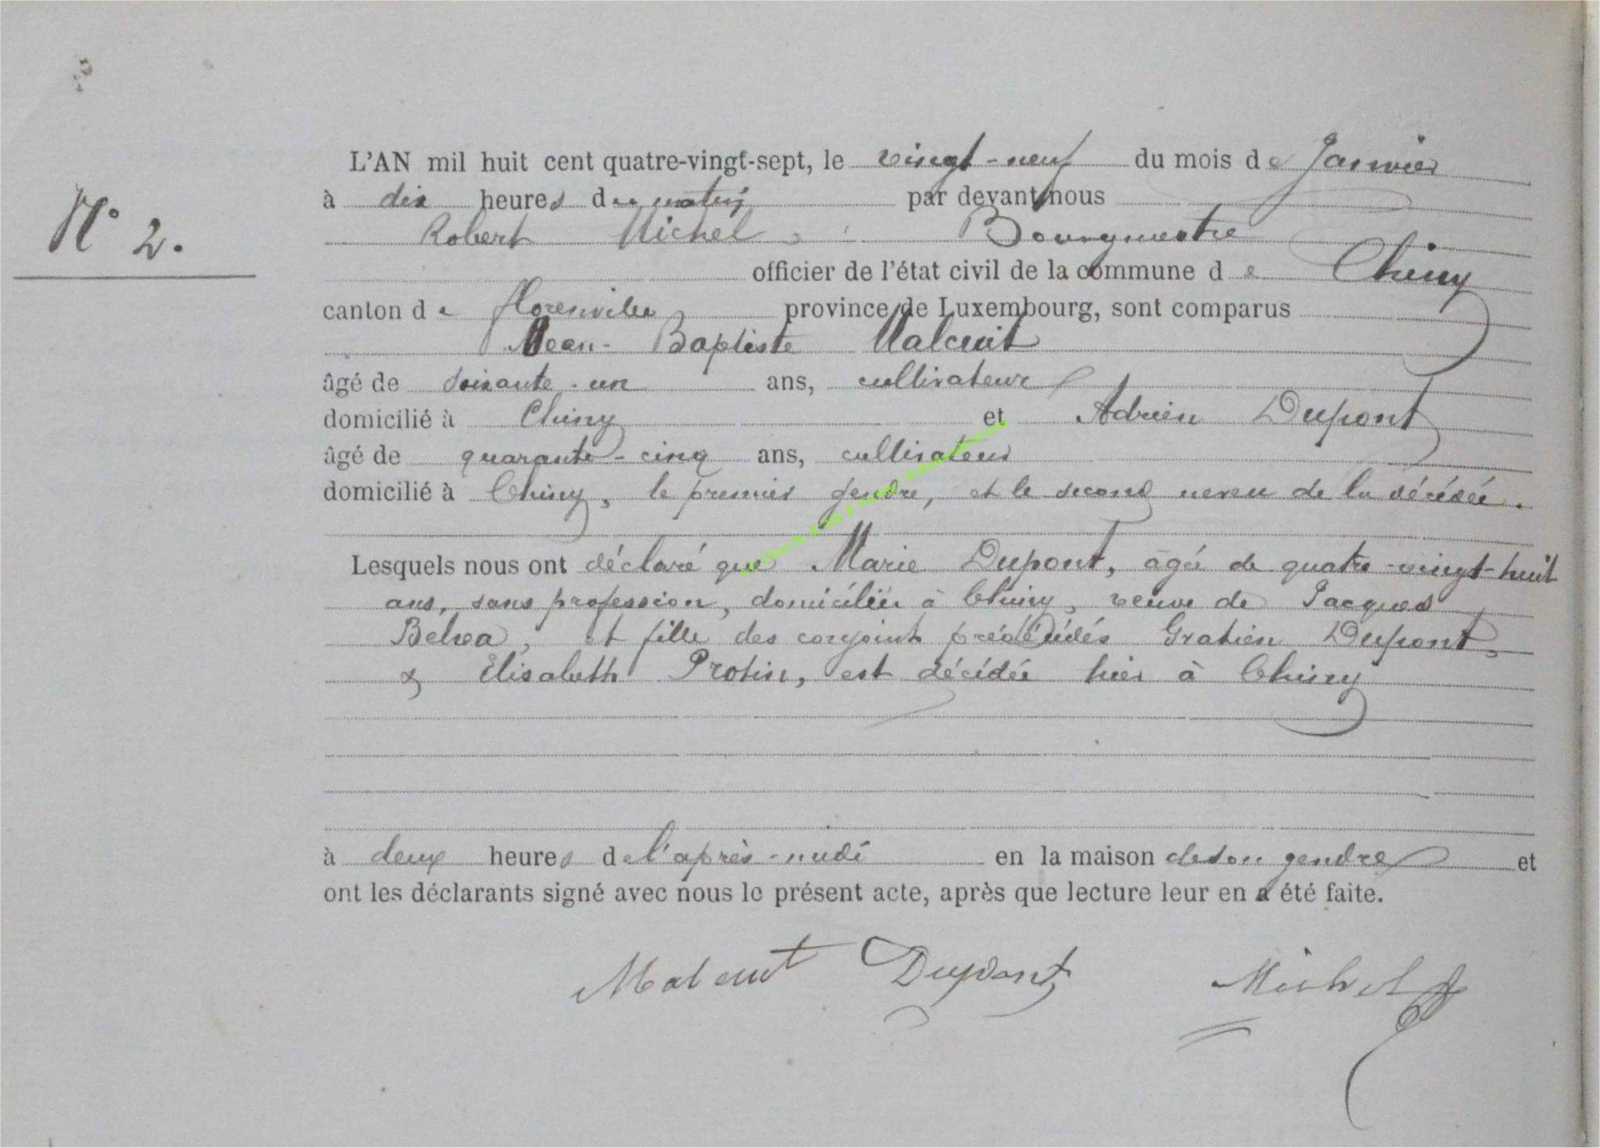 N° 2.
L'AN mil huit cent quatre-vingt-sept, le vingt-neuf du mois de Janvier
à dix heures du matin par devant nous
Robert Michel, Bourgmestre
officier de l'état civil de la commune de Chiny
canton de Florenville province de Luxembourg, sont comparus
Jean-Baptiste Malcuit
âgé de soixante-un ans, cultivateur
domicilié à Chiny et Adrien Dupont
âgé de quarante-cinq ans, cultivateur
domicilié à Chiny, le premier gendre, et le second neveu de la décédée.
Lesquels nous ont déclaré que Marie Dupont, âgée de quatre-vingt-huit
ans, sans profession, domiciliée à Chiny, veuve de Jacques
et fille des conjoints prédécédés Gratien Dupont
& Elisabeth Protin, est décédée hier à Chiny
à deux heures de l'après-midi en la maison de son gendre et
ont les déclarants signé avec nous le présent acte, après que lecture leur en a été faite.
Malcuit Dupont Michel